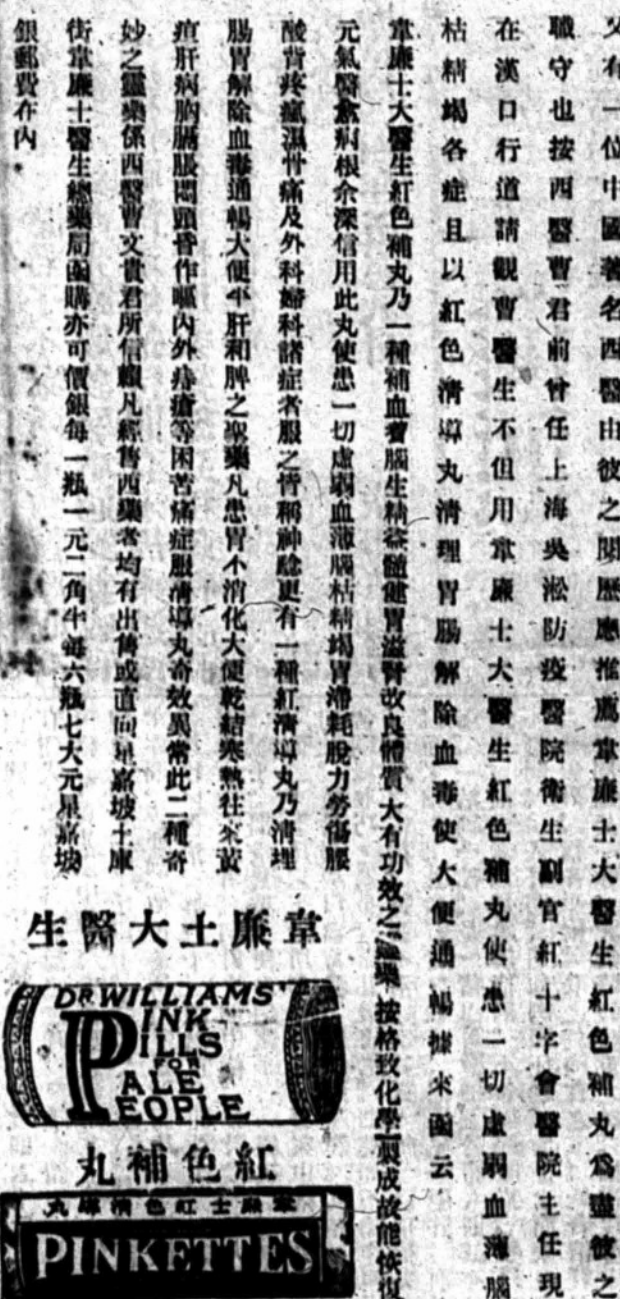 又有一位中國著名西醫由彼之閱歷應推薦韋廉士大醫生紅色補丸爲盡彼之
職守也按西醫曹君前曾任上海吳淞防疫醫院衛生副官紅十字會醫院主任現
在漢口行道請觀曹醫生不但用韋廉士大醫生紅色補丸使患一切虛弱血薄腦
枯精竭各症且以紅色淸導丸淸理胃腸解除血毒使大便通暢據來函云
韋廉士大醫生紅色補丸乃一種補血養腦生精益髓健胃滋腎改良體質大有功效之藥按格致化學製成故能恢復
元氣醫愈病根余深信用此丸使患一切虛弱血薄腦枯精竭胃滯耗脫力勞傷腰
酸背疼瘋濕骨痛及外科婦科諸症者服之皆稱神驗更有一種紅淸導丸乃淸理
腸胃解除血毒通暢大便平肝和脾之聖藥凡患胃不消化大便乾結寒熱往來黃
疸肝病胸膈脹悶頭昏作嘔內外痔瘡等困苦痛症服淸導丸奇效異常此二種奇
妙之靈藥係西醫曹文貴君所信賴凡經售西藥者均有出售或直向星嘉坡土庫
街韋廉士醫生總藥局函購亦可價銀每一瓶一元二角半每六瓶七大元星嘉坡
銀郵費在內
生醫大士廉韋
DR WILLIAMS'
PINK
PILLS
FOR
PALE
PEOPLE
丸補色紅
丸導淸色紅士廉韋
PINKETTES